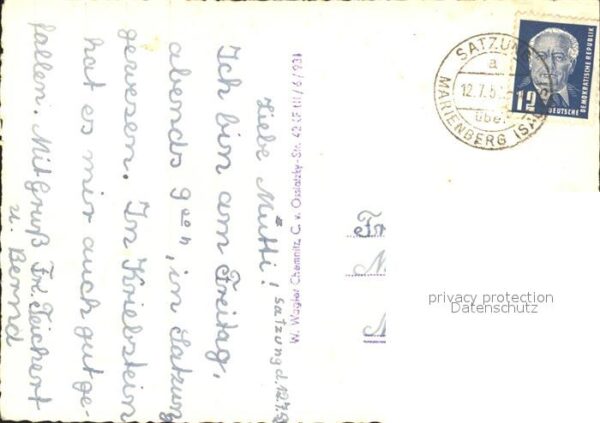 Satzung d. 12.7.5
Liebe Mutti!
Ich bin am Freitag,
abends 9 00 h, in Satzung
gewesen. In Kriebstein
hat es mir auch gut ge-
fallen. Mit Gruß Fr. Teichert
u. Bernd
W. Wagler Chemnitz C. v. Ossietzky-Str. 42
SATZUNG
a
12.7.5
über
MARIENBERG (SACHS)
12
DEUTSCHE
DEMOKRATISCHE REPUBLIK
privacy protection
Datenschutz